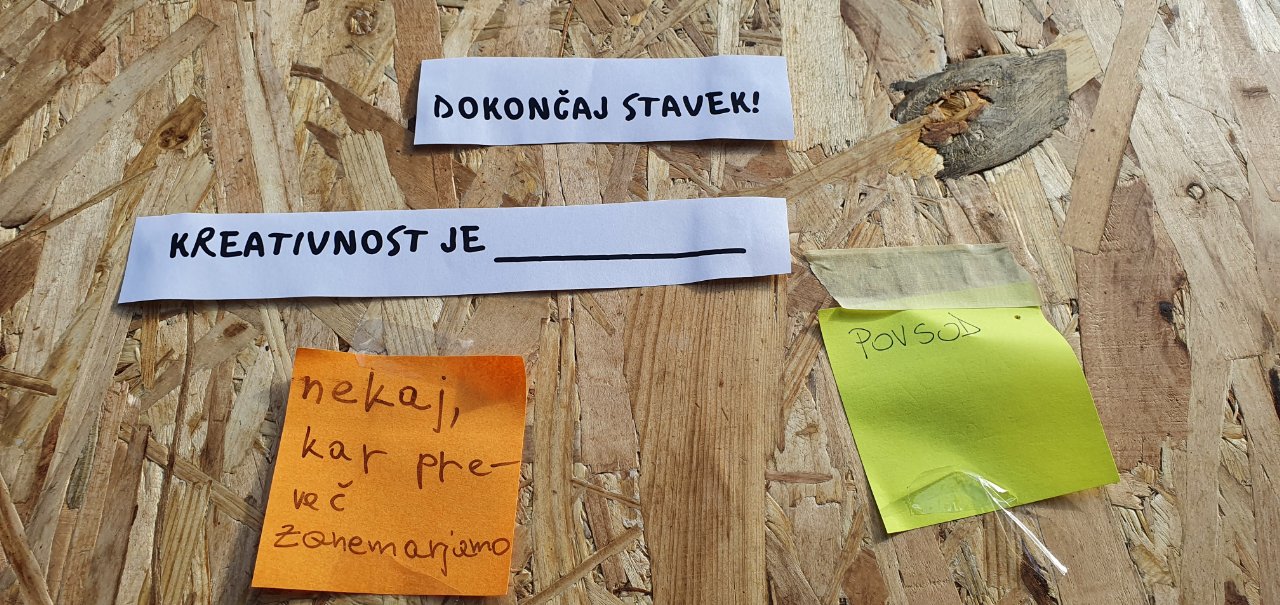 DOKONČAJ STAVEK!
KREATIVNOST JE ___________
nekaj,
kar pre-
več
zanemarjamo
POVSOD